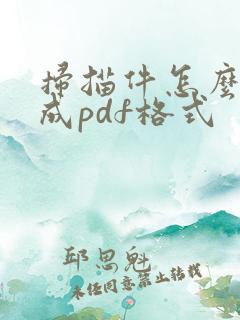 掃描件怎麼
成pdf格式
邱思魁
未經同意禁止轉載